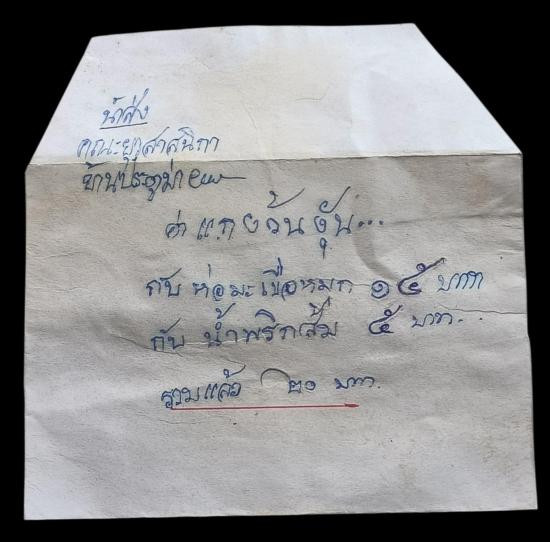 นำส่ง
คณะอุสาสนิกา
บ้านประตูม่า
ค่าแกงวันงัน...
กับ ห่อมะเขือหมูก ๑๕ บาท
กับ น้ำพริกส้ม ๕ บาท..
รวมแล้ว ๒๐ บาท.